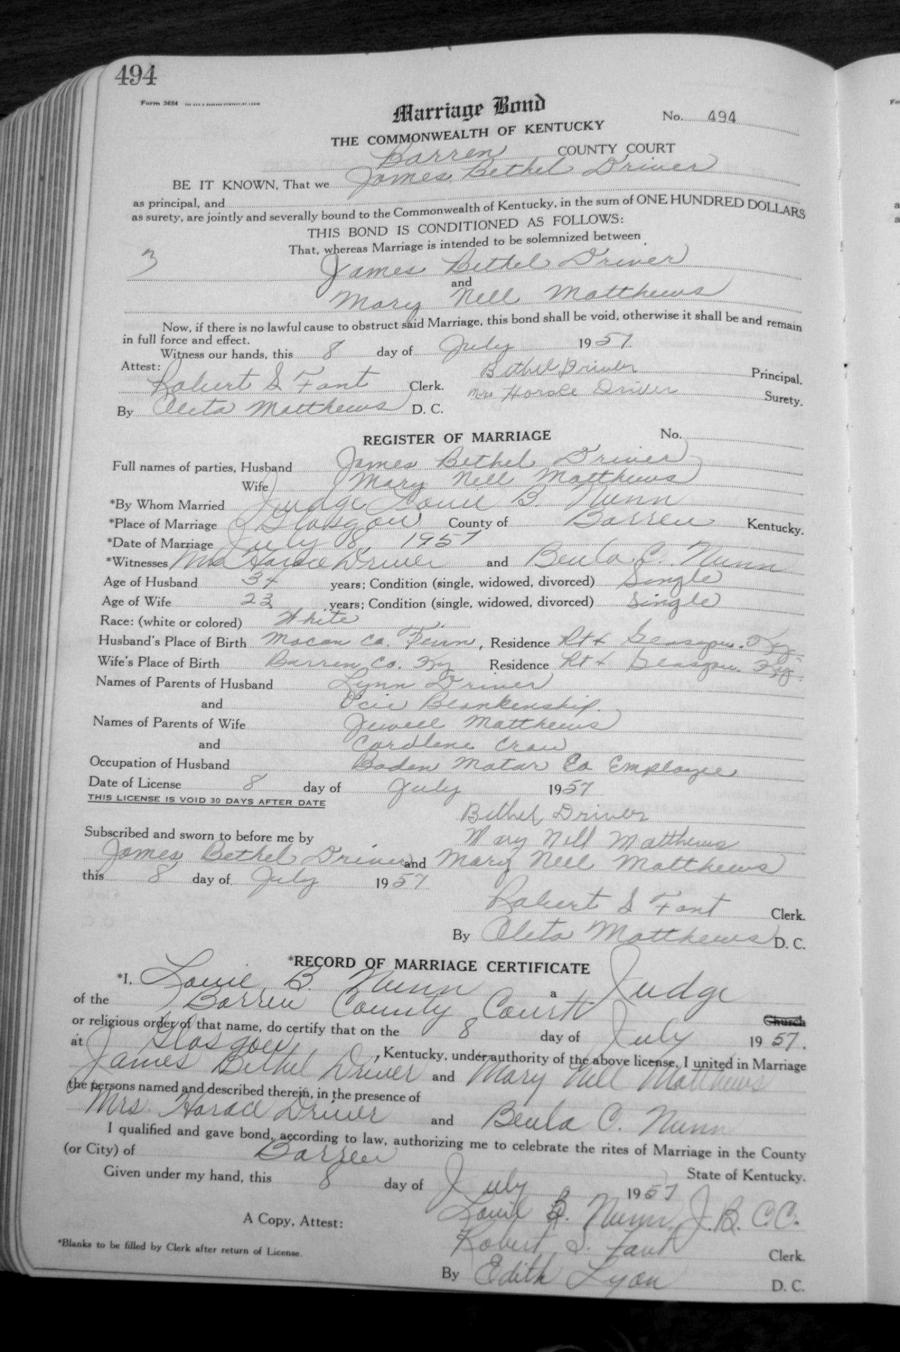 494
Form 3694
Marriage Bond
No. 494
THE COMMONWEALTH OF KENTUCKY
Barren COUNTY COURT
BE IT KNOWN, That we James Bethel Driver
as principal, and
as surety, are jointly and severally bound to the Commonwealth of Kentucky, in the sum of ONE HUNDRED DOLLARS
THIS BOND IS CONDITIONED AS FOLLOWS:
That, whereas Marriage is intended to be solemnized between
3 James Bethel Driver
and
Mary Nell Matthews
Now, if there is no lawful cause to obstruct said Marriage, this bond shall be void, otherwise it shall be and remain
in full force and effect.
Witness our hands, this 8 day of July 1957
Attest: Bethel Driver Principal.
Robert S Fant Clerk. Mrs Horace Driver Surety.
By Oleta Matthews D. C.
REGISTER OF MARRIAGE No.
Full names of parties, Husband James Bethel Driver
Wife Mary Nell Matthews
*By Whom Married Judge Louie B. Nunn
*Place of Marriage Glasgow County of Barren Kentucky.
*Date of Marriage July 8, 1957
*Witnesses Mrs Horace Driver and Beula C. Nunn
Age of Husband 34 years; Condition (single, widowed, divorced) Single
Age of Wife 23 years; Condition (single, widowed, divorced) Single
Race: (white or colored) White
Husband's Place of Birth Macon Co. Tenn, Residence Rt 4 Glasgow. Ky.
Wife's Place of Birth Barren Co. Ky Residence Rt 4 Glasgow. Ky.
Names of Parents of Husband Lynn Driver
and Blankenship.
Names of Parents of Wife Jewell Matthews
and Cardlene
Occupation of Husband Boden Motor Co Employee
Date of License 8 day of July 1957
THIS LICENSE IS VOID 30 DAYS AFTER DATE
Bethel Driver
Subscribed and sworn to before me by Mary Nell Matthews
James Bethel Driver and Mary Nell Matthews
this 8 day of July 1957
Robert S Fant Clerk.
By Oleta Matthews D. C.
*RECORD OF MARRIAGE CERTIFICATE
*I, Louie B. Nunn a Judge
of the Barren County Court Church
or religious order of that name, do certify that on the 8 day of July 1957.
at Glasgow, Kentucky, under authority of the above license, I united in Marriage
James Bethel Driver and Mary Nell Matthews
the persons named and described therein, in the presence of
Mrs. Horace Driver and Beula C. Nunn
I qualified and gave bond, according to law, authorizing me to celebrate the rites of Marriage in the County
(or City) of Barren State of Kentucky.
Given under my hand, this 8 day of July 1957
Louie B. Nunn, J.B.C.C.
A Copy, Attest: Robert S. Fant Clerk.
*Blanks to be filled by Clerk after return of License.
By Edith Lyon D. C.